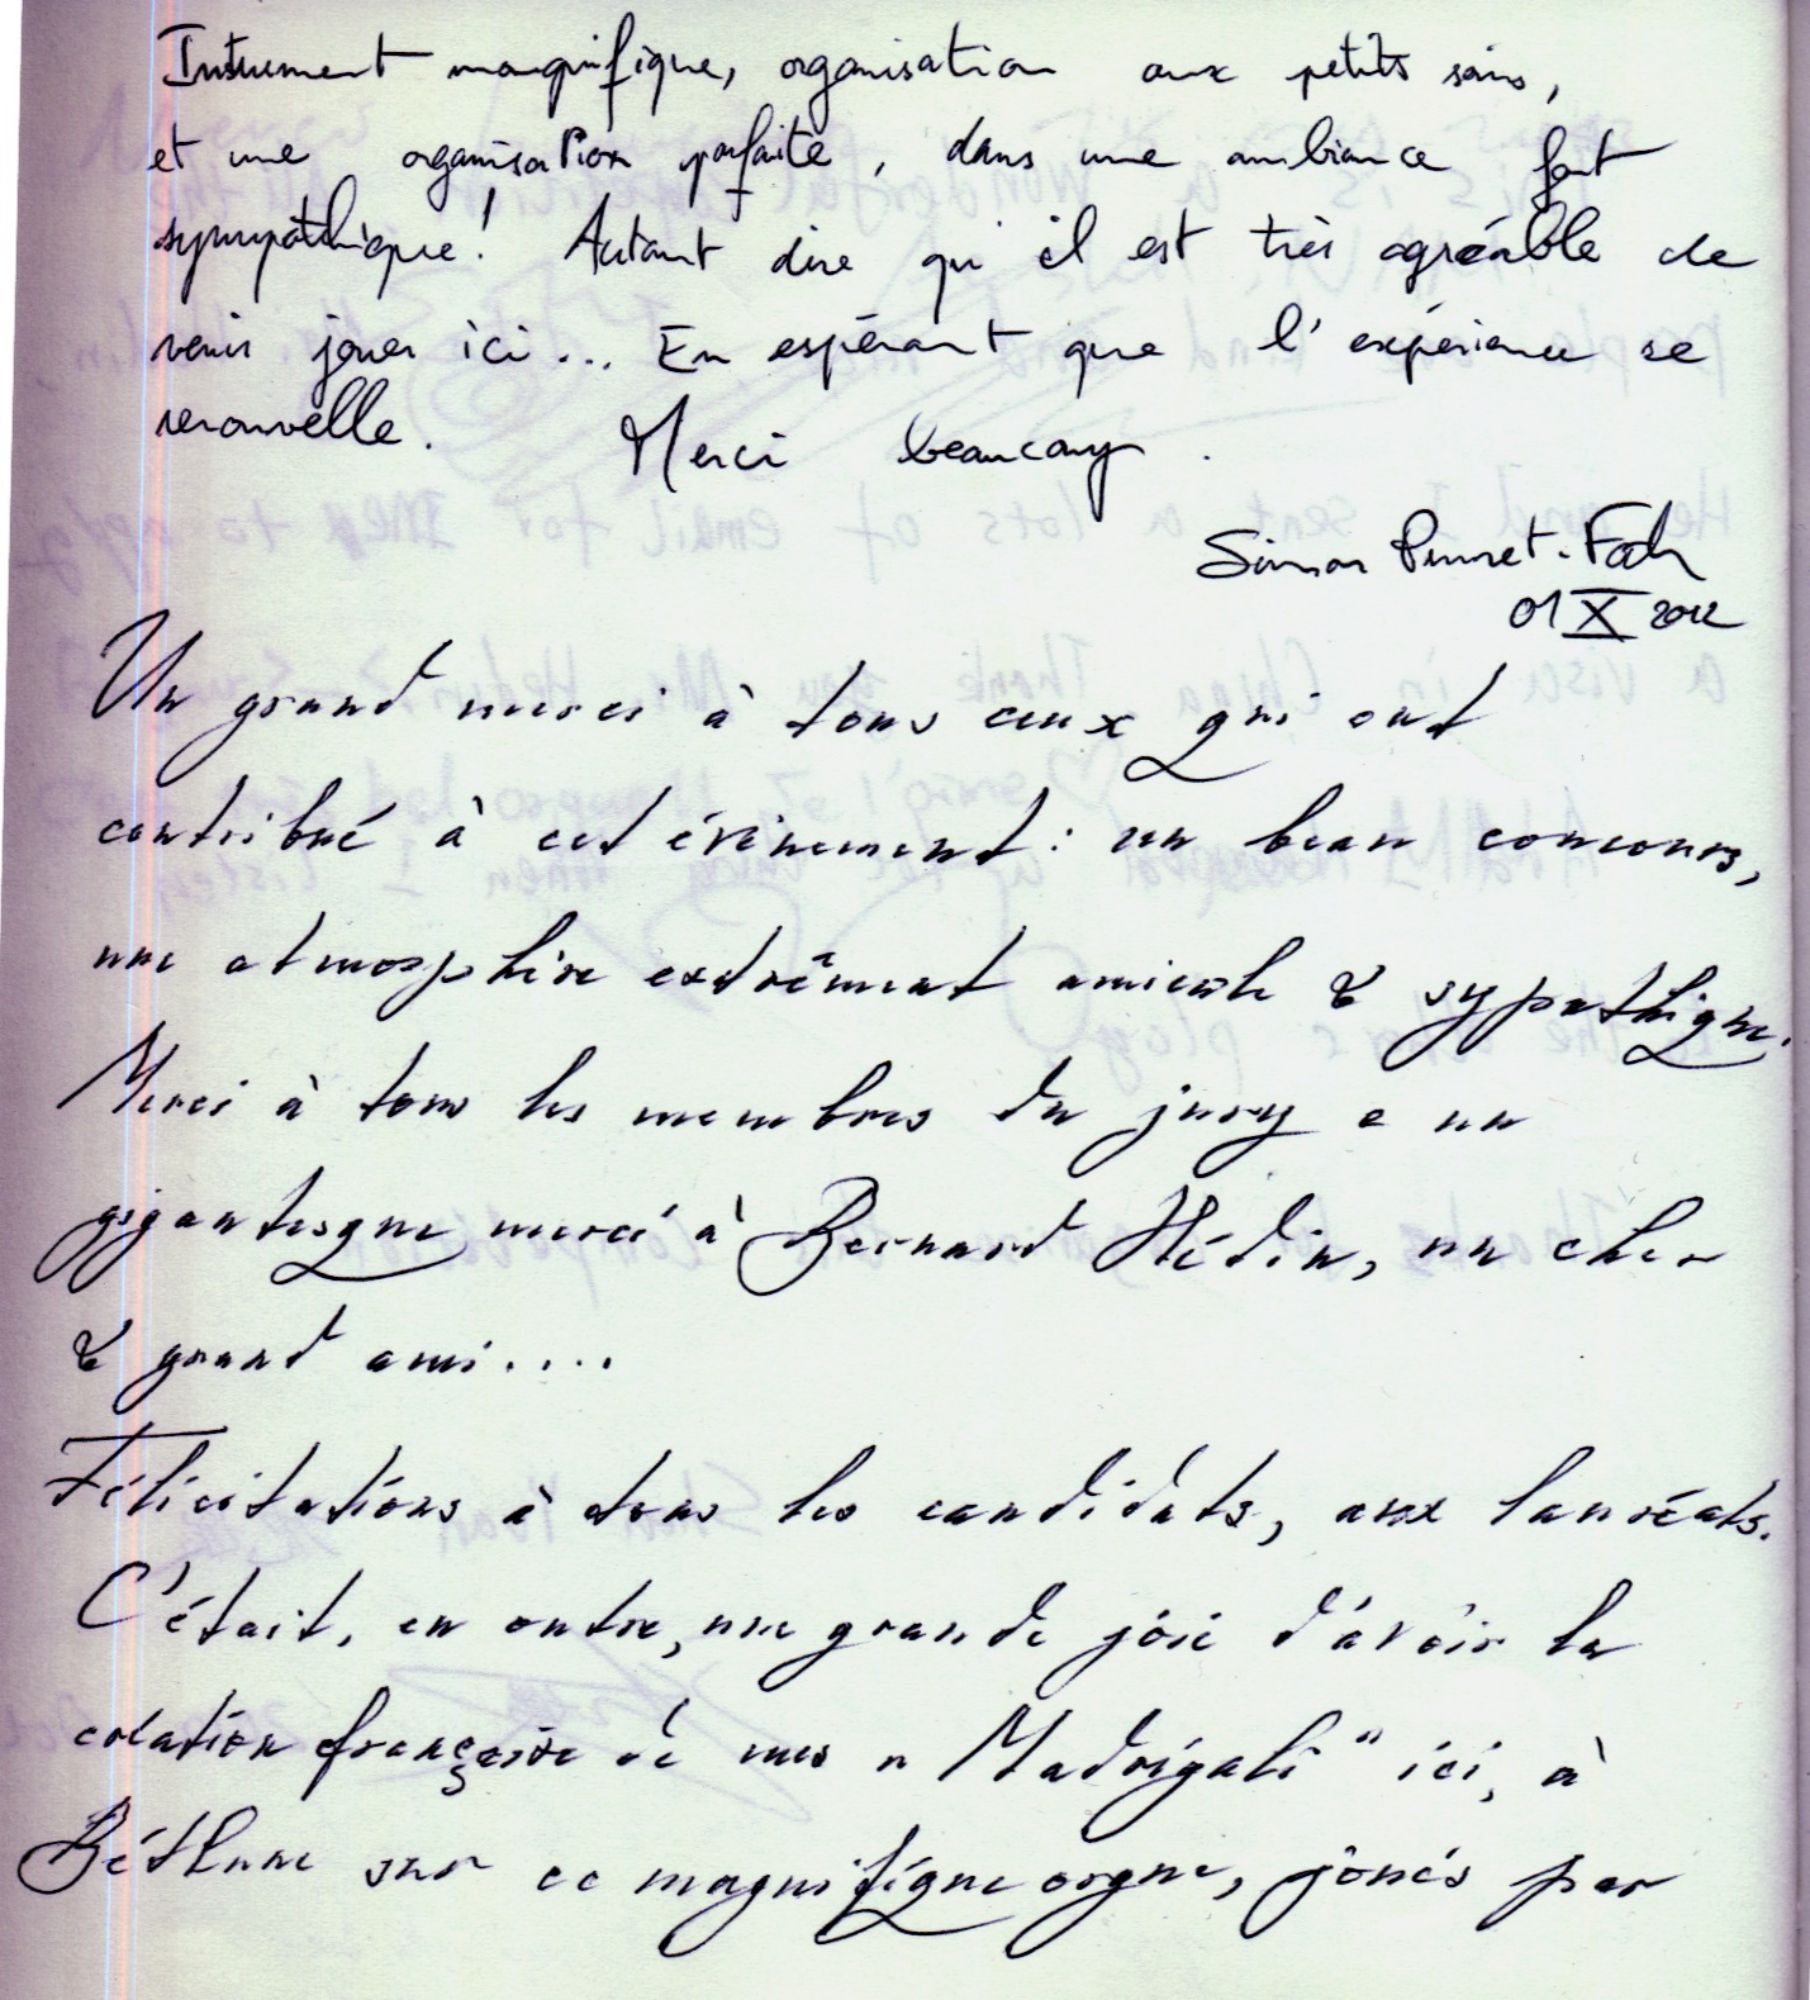 Instrument magnifique, organisation aux petits soins,
et une organisation parfaite, dans une ambiance fort
sympathique! Autant dire qu'il est très agréable de
venir jouer ici... En espérant que l'expérience se
renouvelle. Merci beaucoup.
Simon
01 X 2012
Un grand merci à tous ceux qui ont
contribué à cet évènement: un beau concours,
une atmosphère extrêment amicale & sypathique.
Merci à tous les membres du jury e un
gigantesque merci à Bernard Hédin, un cher
& grand ami....
Félicitations à tous les candidats, aux lauréats.
C'était, en outre, une grande joie d'avoir la
création française de mes "Madrigali" ici, à
Béthune sur ce magnifique orgue, joués par